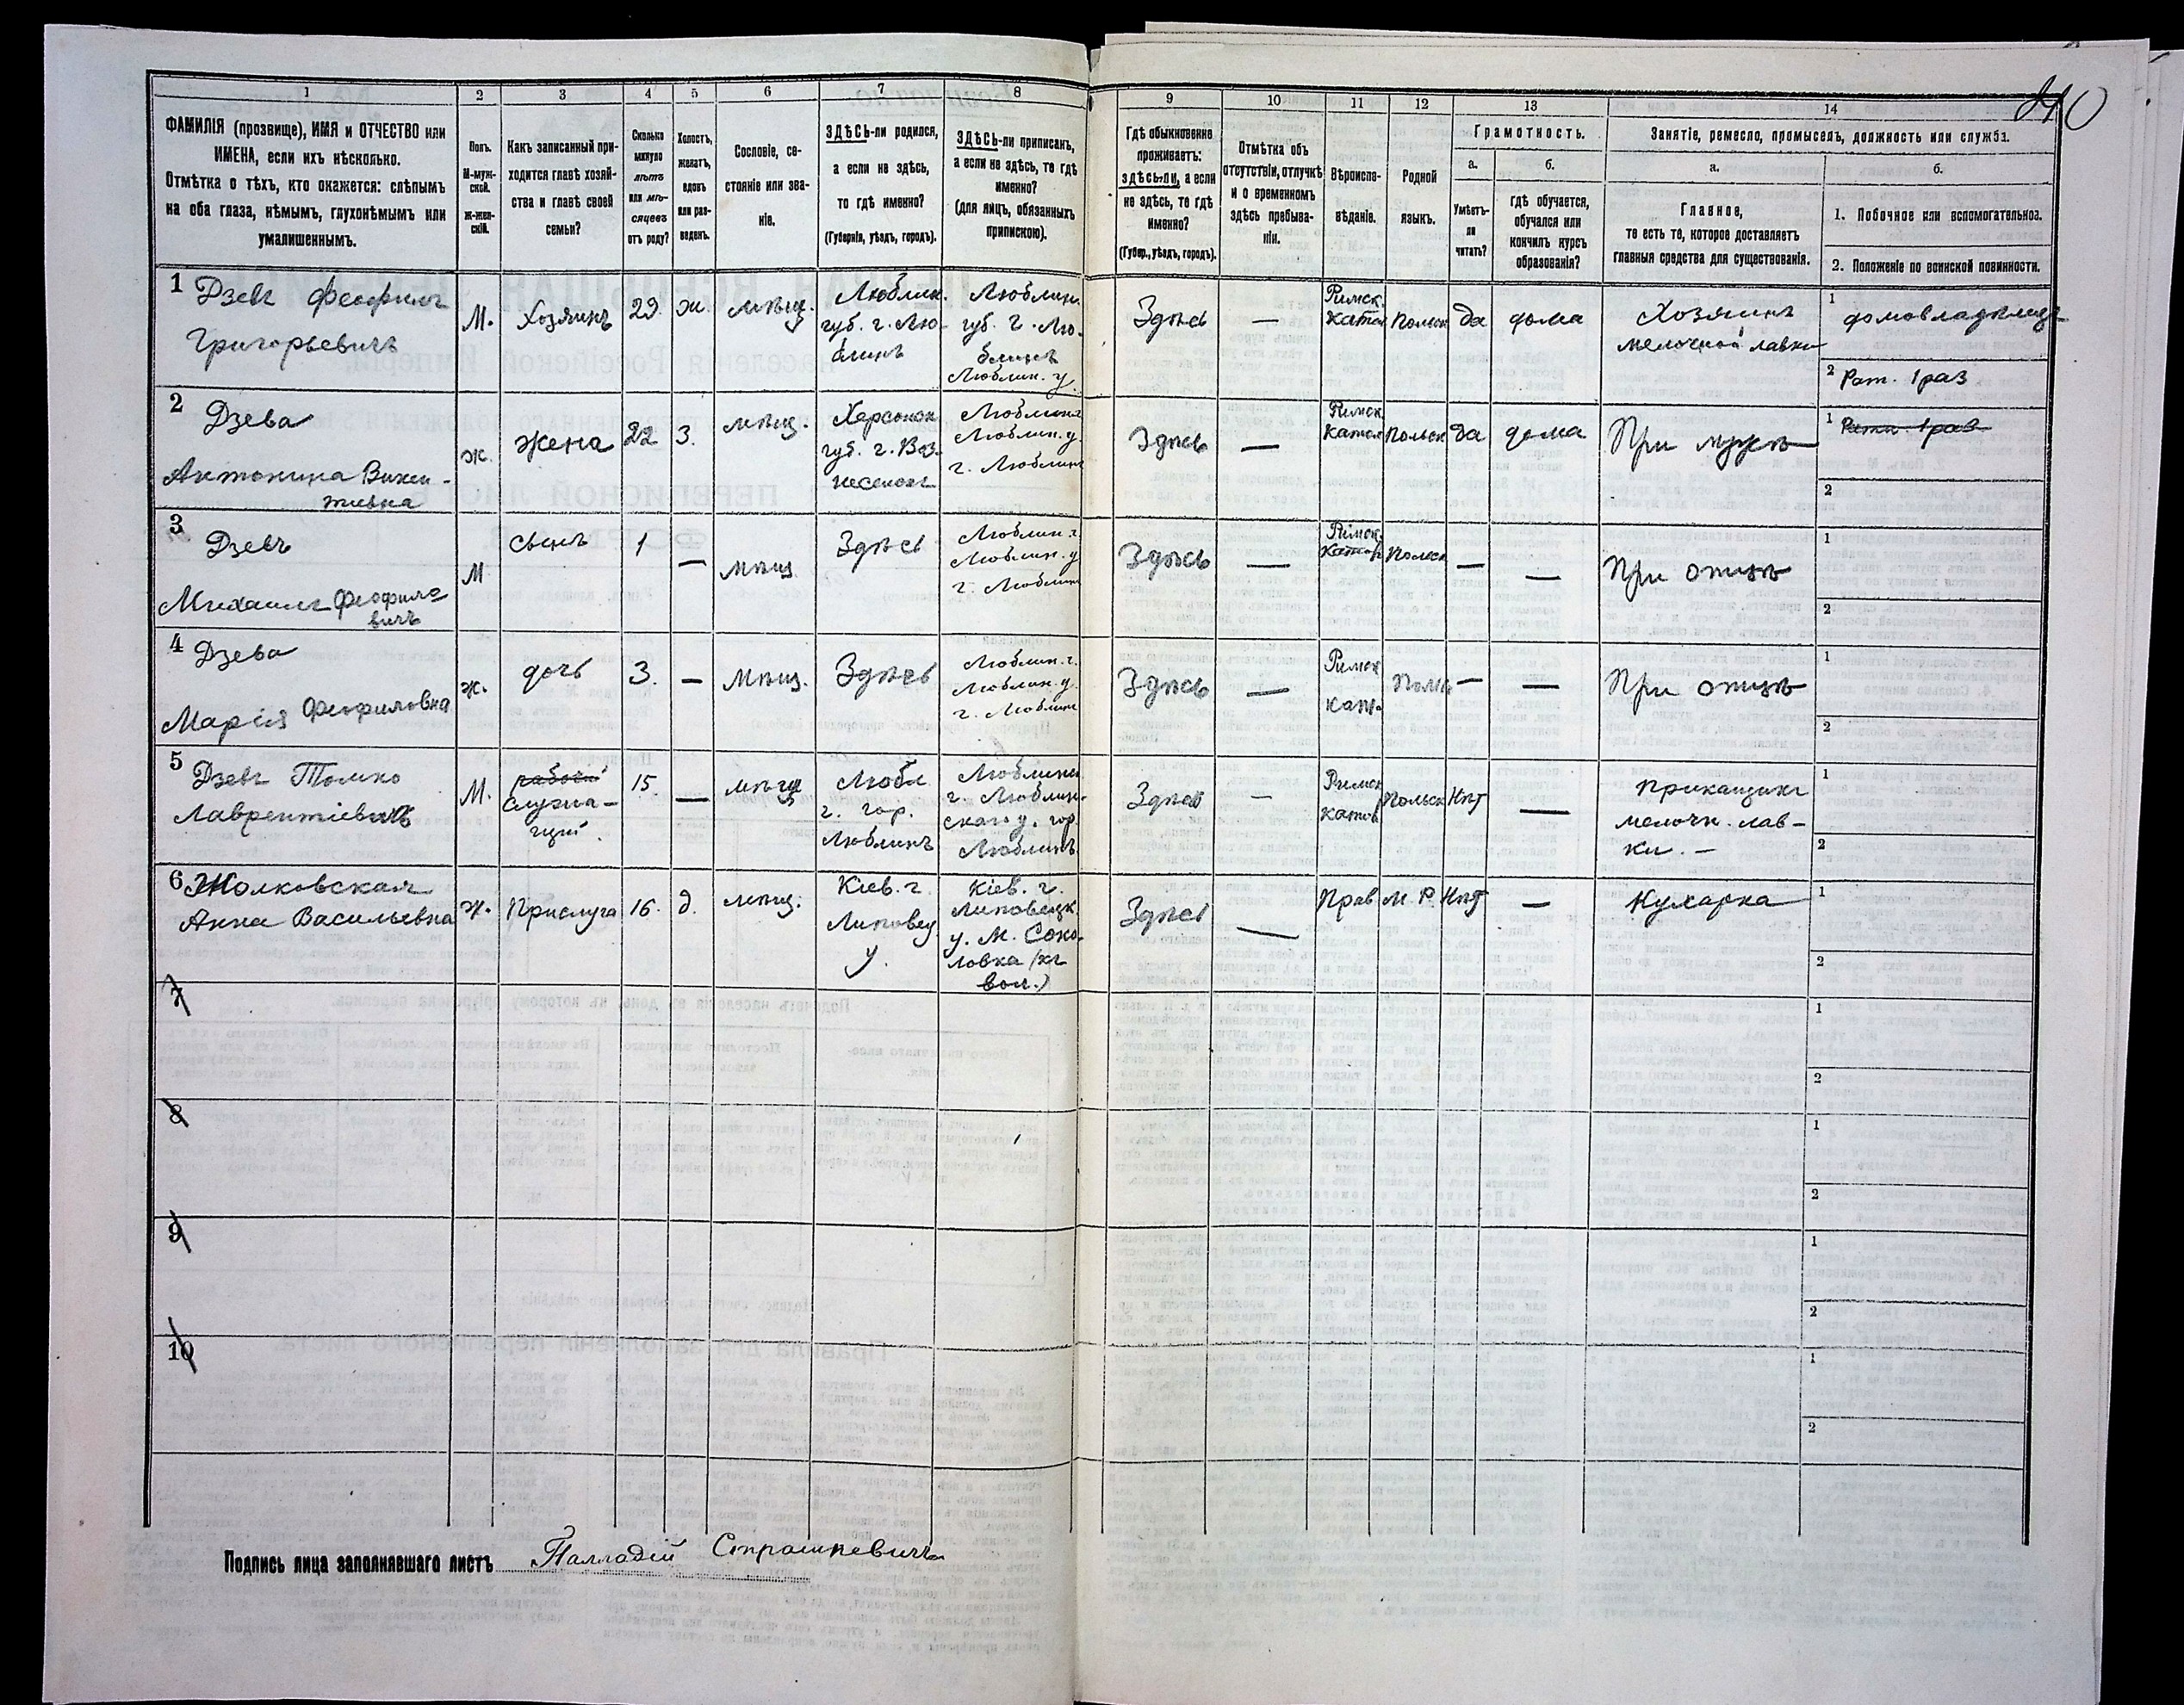 40
1 2 3 4 5 6 7 8 9 10 11 12 13 14
ФАМИЛІЯ (прозвище), ИМЯ и ОТЧЕСТВО или
ИМЕНА, если ихъ нѣсколько.
Отмѣтка о тѣхъ, кто окажется: слѣпымъ
на оба глаза, нѣмымъ, глухонѣмымъ или
умалишеннымъ.
Полъ.
М-муж-
ской.
Ж-жен-
скій.
Какъ записанный при-
ходится главѣ хозяй-
ства и главѣ своей
семьи?
Сколько
минуло
лѣтъ
или мѣ-
сяцевъ
отъ роду?
Холостъ,
женатъ,
вдовъ
или раз-
веденъ.
Сословіе, со-
стояніе или зва-
ніе.
ЗДѢСЬ-ли родился,
а если не здѣсь,
то гдѣ именно?
(Губернія, уѣздъ, городъ).
ЗДѢСЬ-ли приписанъ,
а если не здѣсь, то гдѣ
именно?
(для лицъ, обязанныхъ
припискою).
Гдѣ обыкновенно
проживаетъ:
здѣсь-ли, а если
не здѣсь, то гдѣ
именно?
(Губер., уѣздъ, городъ).
Отмѣтка объ
отсутствіи, отлучкѣ
и о временномъ
здѣсь пребыва-
ніи.
Вѣроиспо-
вѣданіе.
Родной
языкъ.
Грамотность.
а.
Умѣетъ-
ли
читать?
б.
гдѣ обучается,
обучался или
кончилъ курсъ
образованія?
Занятіе, ремесло, промыселъ, должность или служба.
а.
Главное,
то есть то, которое доставляетъ
главныя средства для существованія.
б.
1. Побочное или вспомогательное.
2. Положеніе по воинской повинности.
1 Дзевъ Феофилъ
Григорьевичъ
М.
Хозяинъ
29.
ж
мѣщ.
Люблин.
губ. г. Лю-
блинъ
Люблин.
губ. г. Лю-
блинъ
Люблин. у.
Здѣсь
—
Римск.
катол
Польск
Да
дома
Хозяинъ
мелочной лавки
1 домовладѣлецъ
2 Рат. 1 раз
2 Дзева
Антонина Викен-
тіевна
ж.
жена
22
З.
мѣщ.
Херсонск
губ. г. Воз-
несенскъ
Люблин г
Люблин. у.
г. Люблин
Здѣсь
—
Римск.
катол
Польск
Да
дома
При мужѣ
1 Ратн. 1 раз
2
3 Дзевъ
Михаилъ Феофило
вичъ
М
сынъ
1
—
мѣщ
Здѣсь
Люблин г
Люблин. у
г. Люблин
Здѣсь
—
Римск.
катол
Польск
—
—
При отцѣ
1
2
4 Дзева
Марія Феофиловна
ж.
дочь
3.
—
Мѣщ.
Здѣсь
Люблин. г.
Люблин. у.
г. Люблин
Здѣсь
—
Римск
катол
Польс
—
—
При отцѣ
1
2
5 Дзевъ Томко
Лаврентіевичъ
М.
рабочій
служа-
щій.
15.
—
мѣщ
Любл
г. гор.
Люблинъ
Люблин
г. Люблин-
скаго у. гор
Люблинъ
Здѣсь
—
Римск
катол
Польск
Нѣт
—
прикащикъ
мелочн. лав-
ки. —
1
2
6 Жолковская
Анна Васильевна
ж.
Прислуга
16.
д.
мѣщ.
Кіев. г.
Липовец
у.
Кіев. г.
Липовецк.
у. М. Соко-
ловка (ка
вол.)
Здѣсь
—
Прав
М. Р.
Нѣт
—
Кухарка
1
2
7
1
2
8
1
2
9
1
2
10
1
2
Подпись лица заполнявшаго листъ Палладій Страшкевичъ